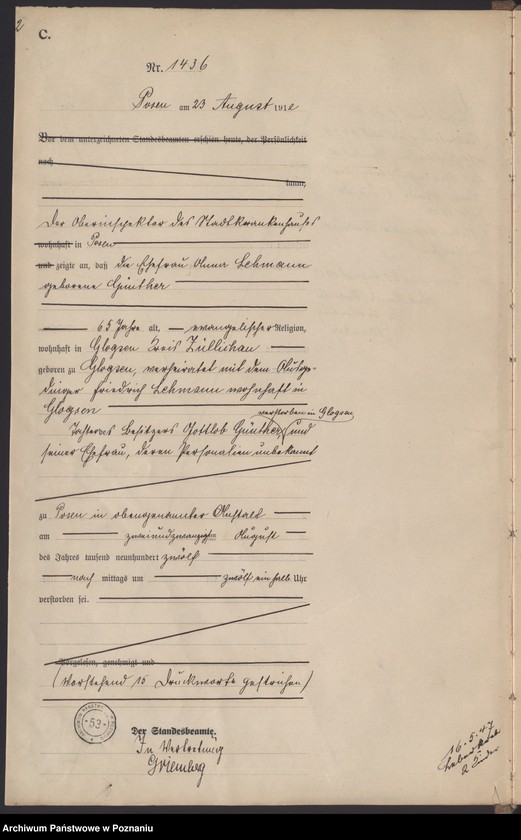 2
C.
Nr. 1436
Posen am 23 August 1912
Vor dem unterzeichneten Standesbeamten erschien heute, der Persönlichkeit
nach
kannt,
Der Oberinspektor des Stadtkrankenhauses
wohnhaft in Posen
und zeigte an, daß die Ehefrau Anna Lehmann
geborene Günther
65 Jahre alt, evangelischer Religion,
wohnhaft in Glogsen Kreis Züllichau
geboren zu Glogsen, verheiratet mit dem Ausge-
dinger Friedrich Lehmann wohnhaft in
Glogsen
verstorben in Glogsen
Tochter des Besitzers Gottlob Günther, und
seiner Ehefrau, deren Personalien unbekannt
zu Posen in obengenannter Anstalt
am zweiundzwanzigsten August
des Jahres tausend neunhundert zwölf
nach mittags um zwölf einhalb Uhr
verstorben sei.
Vorgelesen, genehmigt und
(Vorstehend 15 Druckworte gestrichen)
53
Der Standesbeamte.
In Vertretung
16.5.47
Archiwum Państwowe w Poznaniu